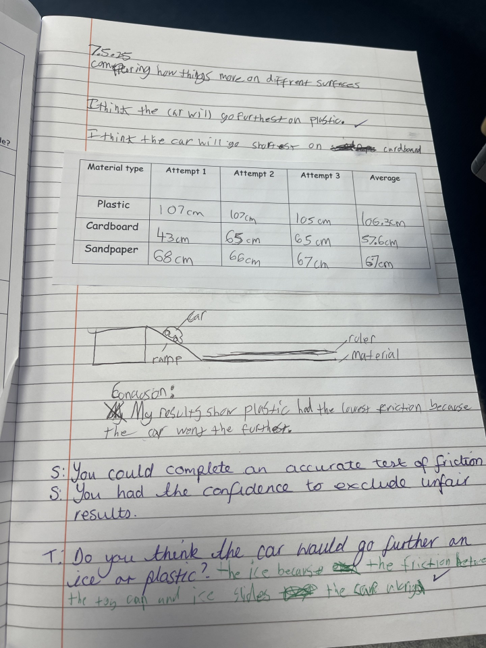 7.5.25
comparing how things move on diffrent surfaces
I think the car will go furthest on plastic. ✓
I think the car will go shortest on cardboard
Material type Attempt 1 Attempt 2 Attempt 3 Average
Plastic 107cm 107cm 105cm 106.3cm
Cardboard 43cm 65cm 65cm 57.6cm
Sandpaper 68cm 66cm 67cm 67cm
car
ruler
ramp material
Conclusion:
My results show plastic had the lowest friction because
the car went the furthest.
S: You could complete an accurate test of friction
S: You had the confidence to exclude unfair
results.
T: Do you think the car would go further on
ice or plastic? The ice because the friction
the car and ice slides the ✓